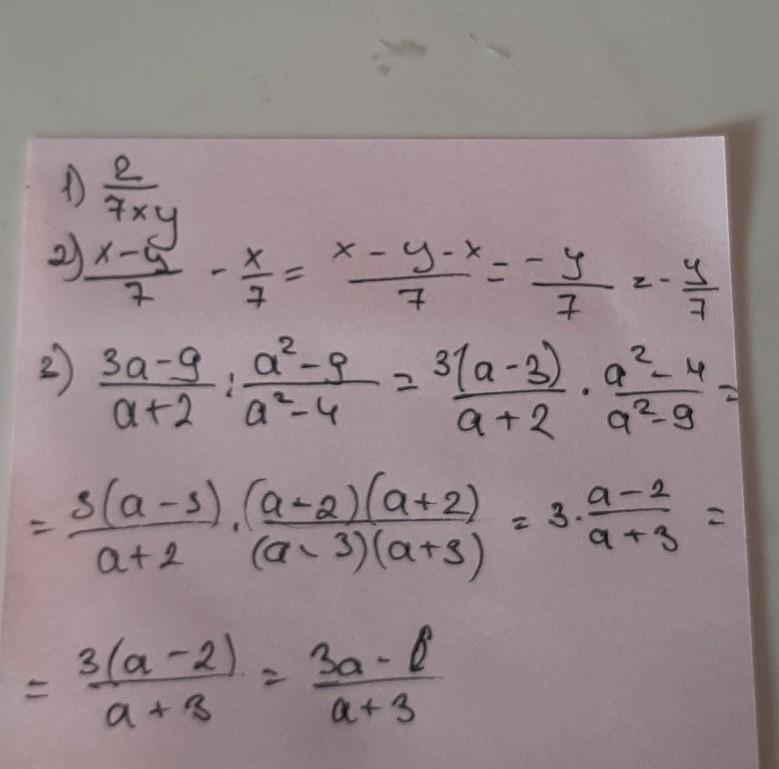 1) 2/7xy
2) x-y/7 - x/7 = x-y-x/7 = -y/7 = -y/7
2) 3a-9/a+2 : a²-9/a²-4 = 3(a-3)/a+2 · a²-4/a²-9 =
= 3(a-3)/a+2 · (a-2)(a+2)/(a-3)(a+3) = 3·a-2/a+3 =
= 3(a-2)/a+3 = 3a-6/a+3